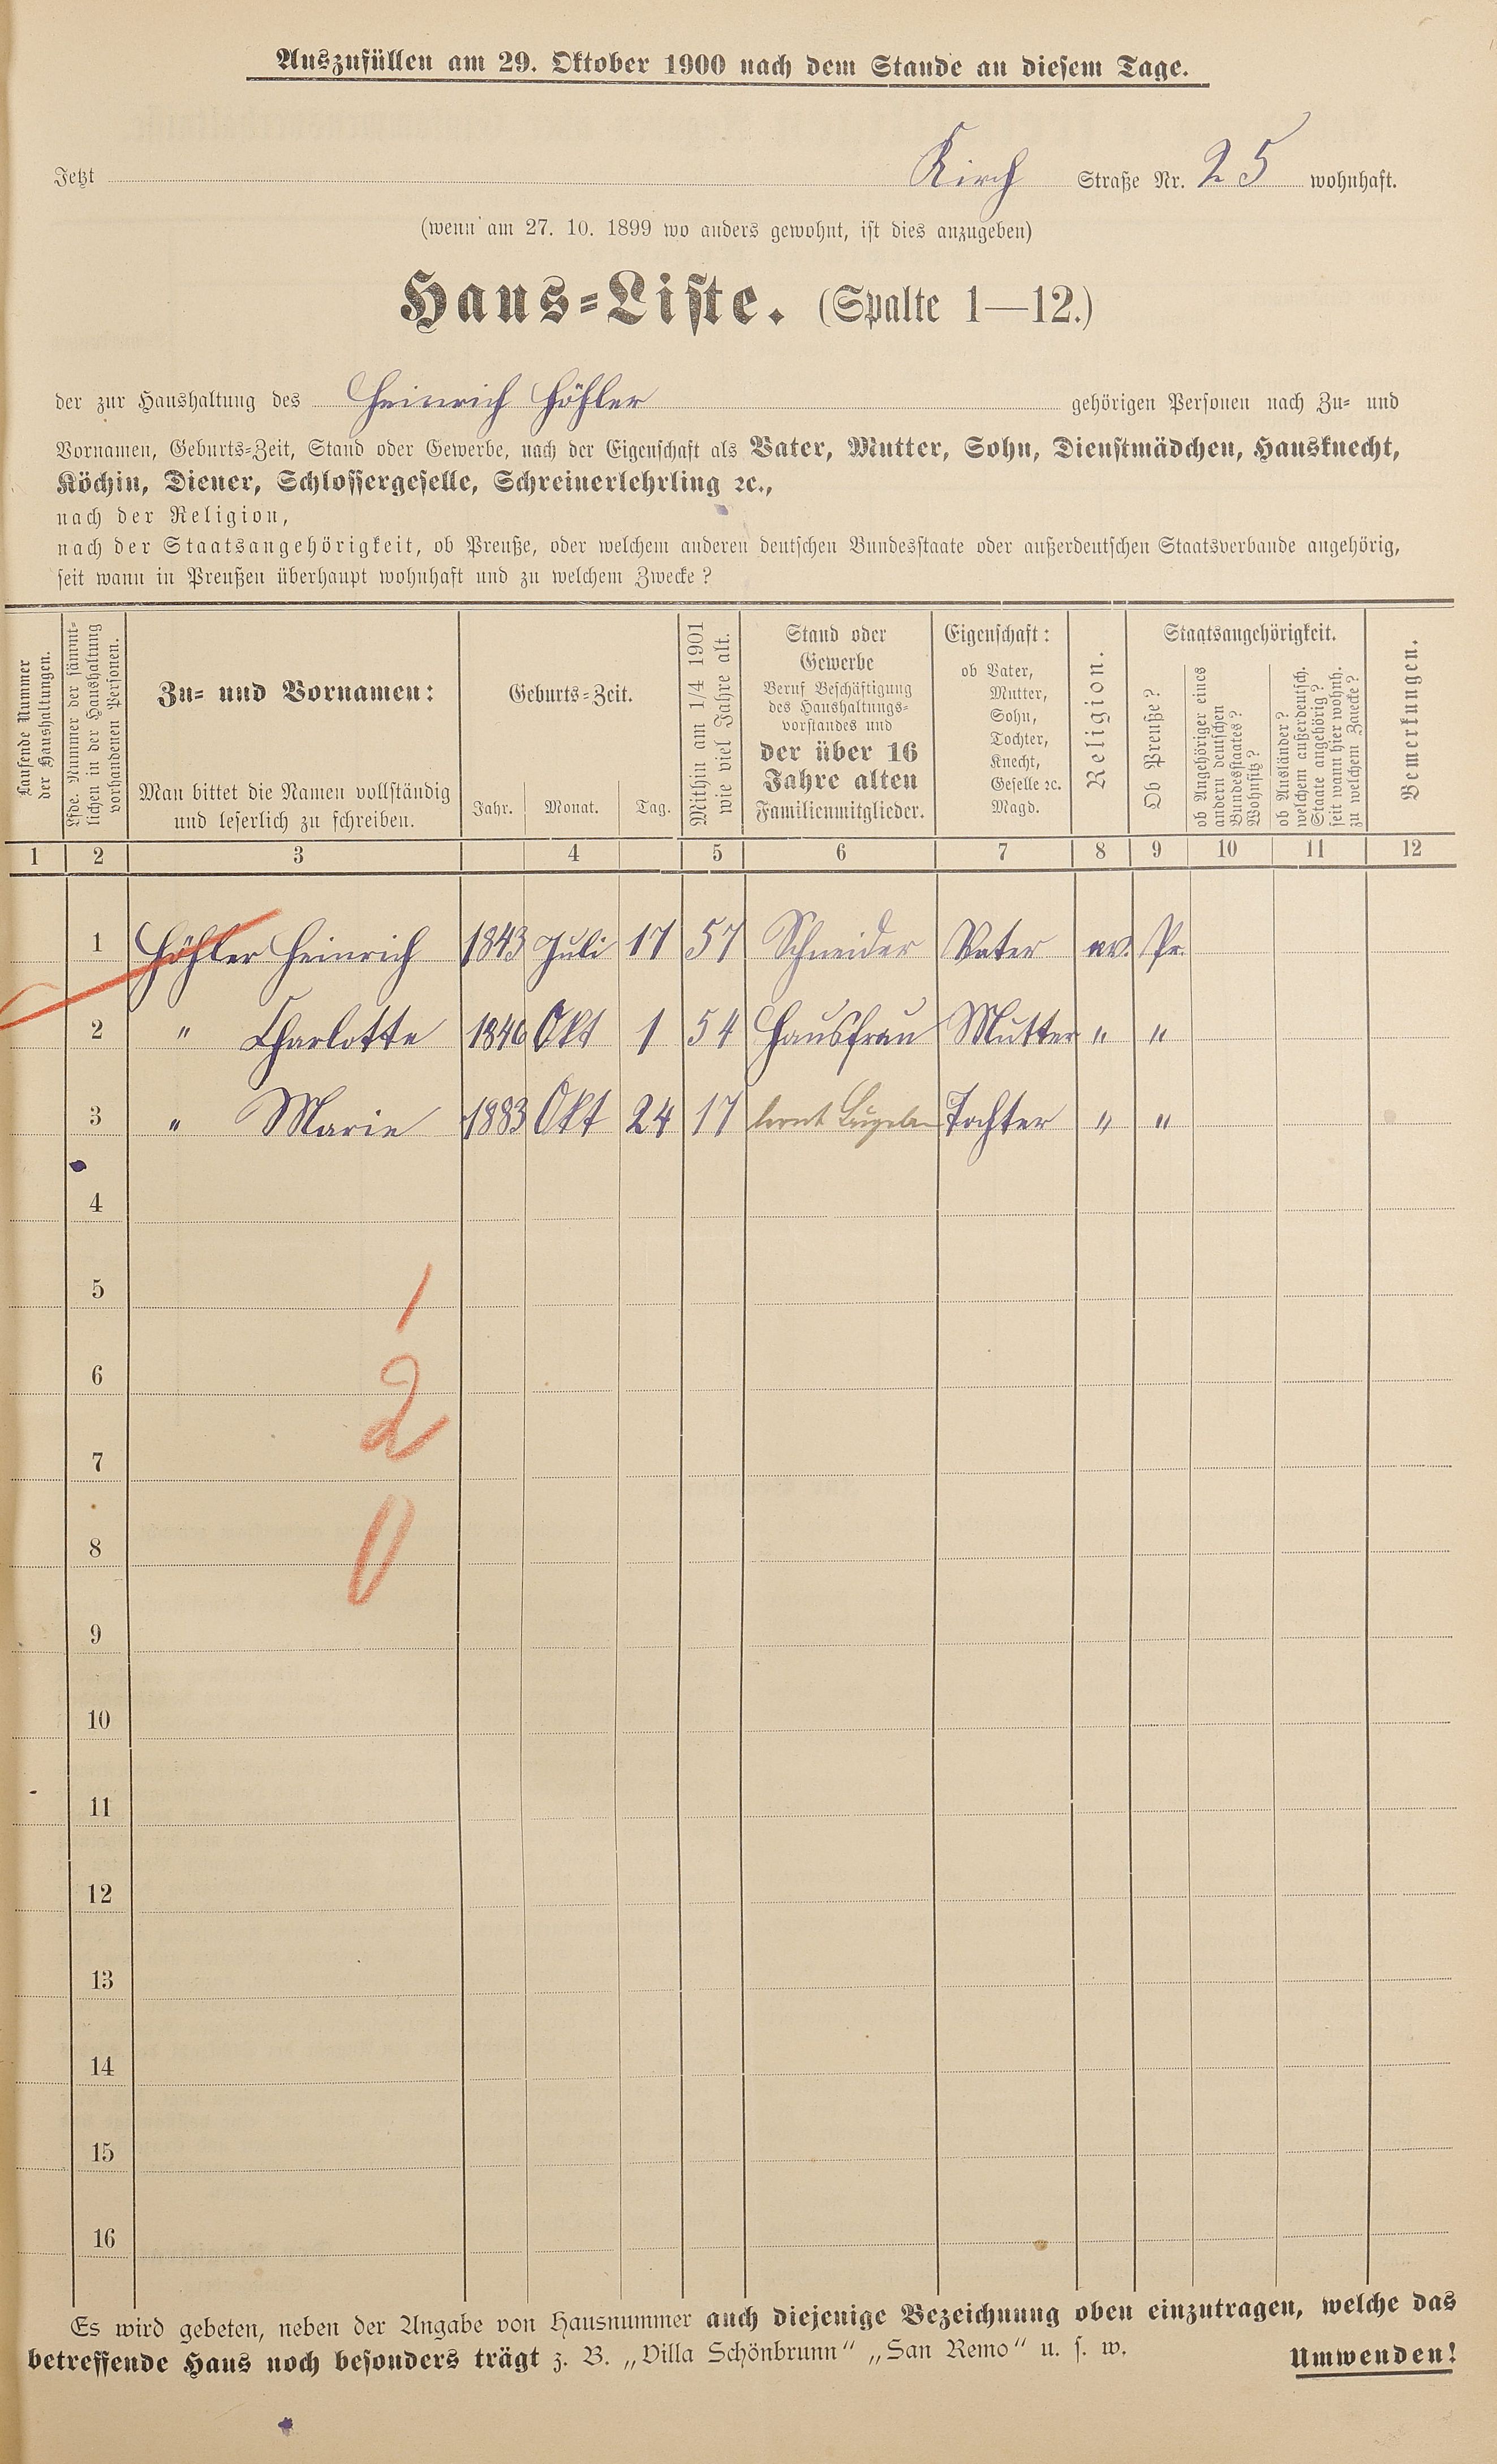 Auszufüllen am 29. Oktober 1900 nach dem Stande an diesem Tage.
Jetzt Kirch Straße Nr. 25 wohnhaft.
(wenn am 27. 10. 1899 wo anders gewohnt, ist dies anzugeben)
Haus-Liste. (Spalte 1—12.)
der zur Haushaltung des Heinrich Höhler gehörigen Personen nach Zu- und
Vornamen, Geburts-Zeit, Stand oder Gewerbe, nach der Eigenschaft als Vater, Mutter, Sohn, Dienstmädchen, Hausknecht,
Köchin, Diener, Schlossergeselle, Schreinerlehrling ꝛc.,
nach der Religion,
nach der Staatsangehörigkeit, ob Preuße, oder welchem anderen deutschen Bundesstaate oder außerdeutschen Staatsverbande angehörig,
seit wann in Preußen überhaupt wohnhaft und zu welchem Zwecke?
Laufende Nummer
der Haushaltungen.
Lfde. Nummer der sämmt-
lichen in der Haushaltung
vorhandenen Personen.
Zu- und Vornamen:
Man bittet die Namen vollständig
und leserlich zu schreiben.
Geburts-Zeit.
Jahr. Monat. Tag.
Mithin am 1/4 1901
wie viel Jahre alt.
Stand oder
Gewerbe
Beruf Beschäftigung
des Haushaltungs-
vorstandes und
der über 16
Jahre alten
Familienmitglieder.
Eigenschaft:
ob Vater,
Mutter,
Sohn,
Tochter,
Knecht,
Geselle ꝛc.
Magd.
Religion.
Staatsangehörigkeit.
Ob Preuße?
ob Angehöriger eines
andern deutschen
Bundesstaates?
Wohnsitz?
ob Ausländer?
welchem außerdeutsch.
Staate angehörig?
seit wann hier wohnh.
zu welchem Zwecke?
Bemerkungen.
1 2 3 4 5 6 7 8 9 10 11 12
1 Höhler Heinrich 1843 Juli 17 57 Schneider Vater ev. Pr.
2 " Charlotte 1846 Okt 1 54 Hausfrau Mutter " "
3 " Marie 1883 Okt 24 17 lernt Bügeln Tochter " "
4
5
1
6
2
7
8
0
9
10
11
12
13
14
15
16
Es wird gebeten, neben der Angabe von Hausnummer auch diejenige Bezeichnung oben einzutragen, welche das
betreffende Haus noch besonders trägt z. B. „Villa Schönbrunn“ „San Remo“ u. s. w. Umwenden!